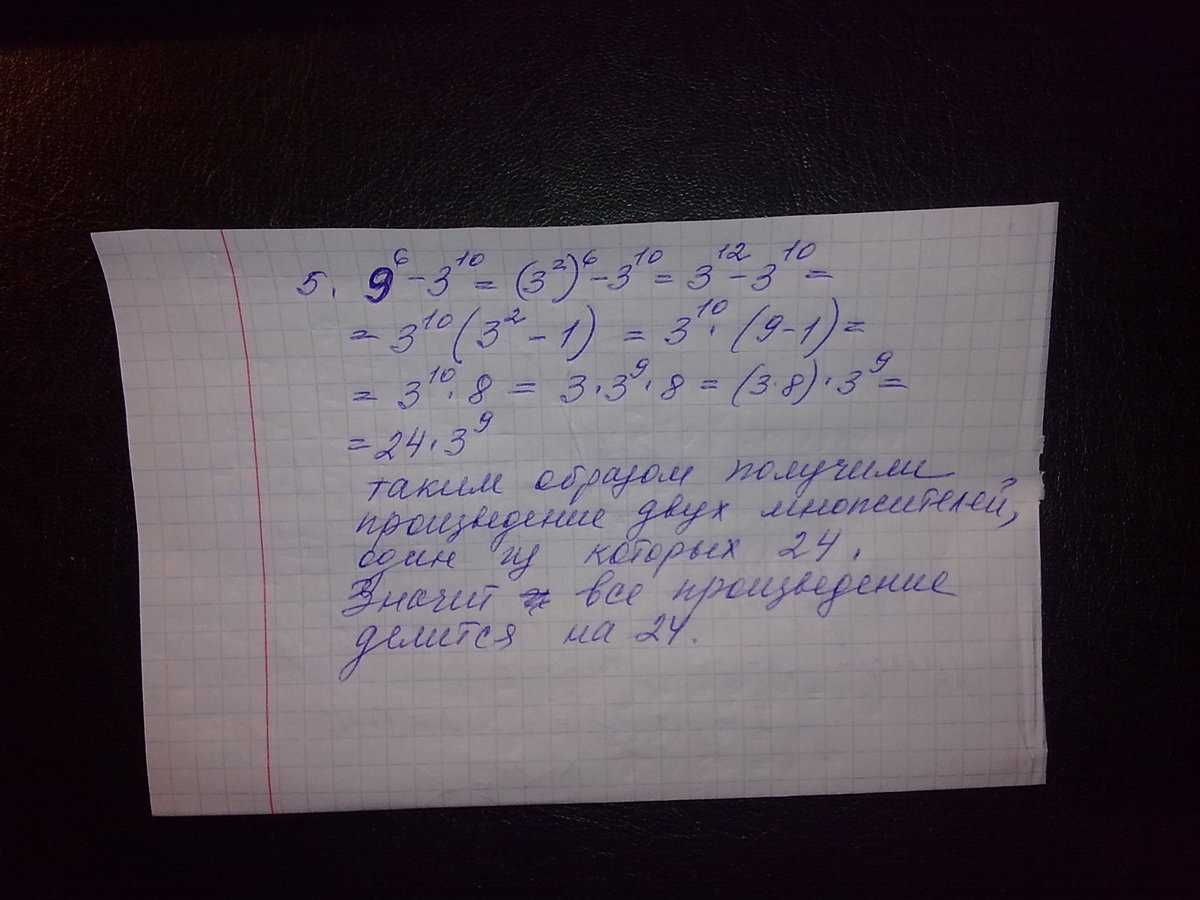 5. 9⁶ - 3¹⁰ = (3²)⁶ - 3¹⁰ = 3¹² - 3¹⁰ =
= 3¹⁰ (3² - 1) = 3¹⁰ · (9 - 1) =
= 3¹⁰ · 8 = 3 · 3⁹ · 8 = (3 · 8) · 3⁹ =
= 24 · 3⁹
таким образом получили
произведение двух множителей,
один из которых 24.
Значит все произведение
делится на 24.